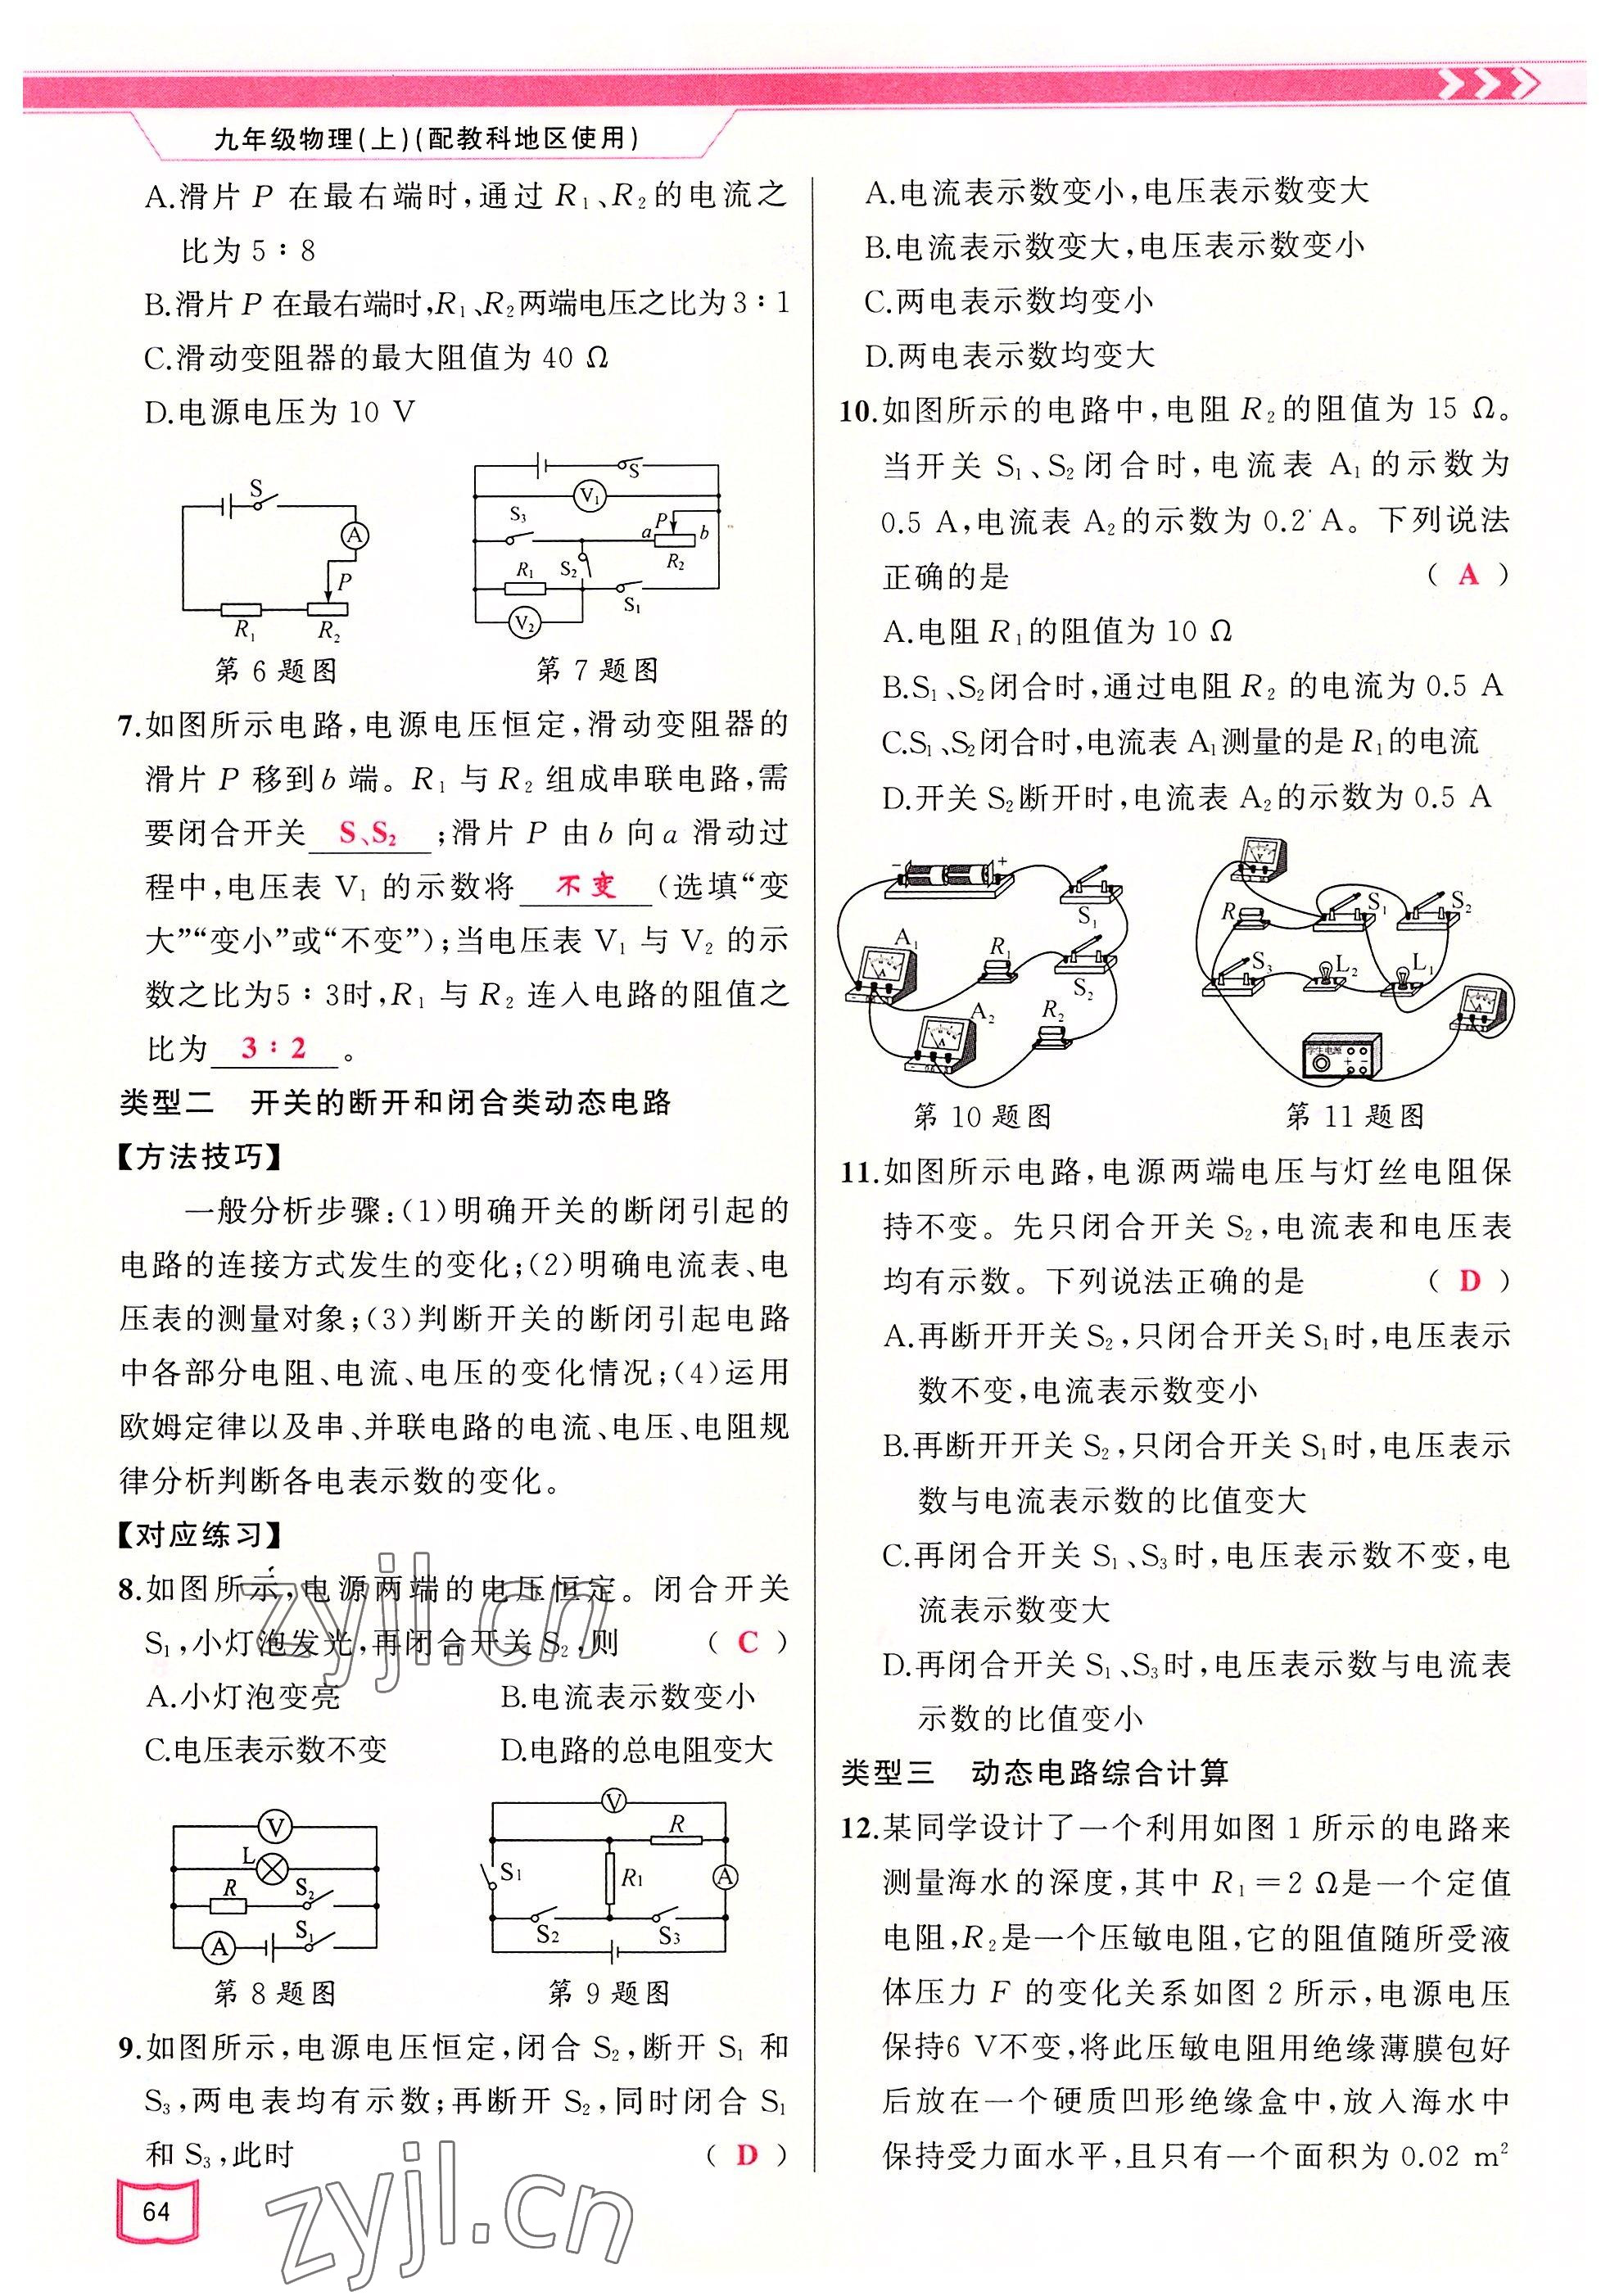 九年级物理(上)(配教科地区使用)
A.滑片 P 在最右端时,通过 R₁、R₂的电流之
比为 5∶8
B.滑片 P 在最右端时,R₁、R₂两端电压之比为 3∶1
C.滑动变阻器的最大阻值为 40 Ω
D.电源电压为 10 V
S
A
P
R₁
R₂
第 6 题图
S
V₁
S₃
a
P
b
R₂
S₂
R₁
S₁
V₂
第 7 题图
7.如图所示电路,电源电压恒定,滑动变阻器的
滑片 P 移到 b 端。R₁ 与 R₂ 组成串联电路,需
要闭合开关 S、S₂ ;滑片 P 由 b 向 a 滑动过
程中,电压表 V₁ 的示数将 不变 (选填“变
大”“变小”或“不变”);当电压表 V₁ 与 V₂ 的示
数之比为5∶3时,R₁ 与 R₂ 连入电路的阻值之
比为 3∶2 。
类型二 开关的断开和闭合类动态电路
【方法技巧】
一般分析步骤:(1)明确开关的断闭引起的
电路的连接方式发生的变化;(2)明确电流表、电
压表的测量对象;(3)判断开关的断闭引起电路
中各部分电阻、电流、电压的变化情况;(4)运用
欧姆定律以及串、并联电路的电流、电压、电阻规
律分析判断各电表示数的变化。
【对应练习】
8.如图所示,电源两端的电压恒定。闭合开关
S₁,小灯泡发光,再闭合开关 S₂,则 ( C )
A.小灯泡变亮 B.电流表示数变小
C.电压表示数不变 D.电路的总电阻变大
V
L
R
S₂
A
S₁
第 8 题图
V
R
S₁
R₁
A
S₂
S₃
第 9 题图
9.如图所示,电源电压恒定,闭合 S₂,断开 S₁ 和
S₃,两电表均有示数;再断开 S₂,同时闭合 S₁
和 S₃,此时 ( D )
zyjl.cn
zyjl.cn
64
A.电流表示数变小,电压表示数变大
B.电流表示数变大,电压表示数变小
C.两电表示数均变小
D.两电表示数均变大
10.如图所示的电路中,电阻 R₂的阻值为 15 Ω。
当开关 S₁、S₂闭合时,电流表 A₁的示数为
0.5 A,电流表 A₂的示数为 0.2 A。下列说法
正确的是 ( A )
A.电阻 R₁的阻值为 10 Ω
B.S₁、S₂闭合时,通过电阻 R₂ 的电流为 0.5 A
C.S₁、S₂闭合时,电流表 A₁测量的是 R₁的电流
D.开关 S₂断开时,电流表 A₂的示数为 0.5 A
− +
S₁
A₁
R₁
S₂
A₂
R₂
第 10 题图
V
R
S₁
S₂
S₃
L₂
L₁
A
学生电源
第 11 题图
11.如图所示电路,电源两端电压与灯丝电阻保
持不变。先只闭合开关 S₂,电流表和电压表
均有示数。下列说法正确的是 ( D )
A.再断开开关 S₂,只闭合开关 S₁时,电压表示
数不变,电流表示数变小
B.再断开开关 S₂,只闭合开关 S₁时,电压表示
数与电流表示数的比值变大
C.再闭合开关 S₁、S₃时,电压表示数不变,电
流表示数变大
D.再闭合开关 S₁、S₃时,电压表示数与电流表
示数的比值变小
类型三 动态电路综合计算
12.某同学设计了一个利用如图 1 所示的电路来
测量海水的深度,其中 R₁=2 Ω是一个定值
电阻,R₂是一个压敏电阻,它的阻值随所受液
体压力 F 的变化关系如图 2 所示,电源电压
保持6 V不变,将此压敏电阻用绝缘薄膜包好
后放在一个硬质凹形绝缘盒中,放入海水中
保持受力面水平,且只有一个面积为 0.02 m²